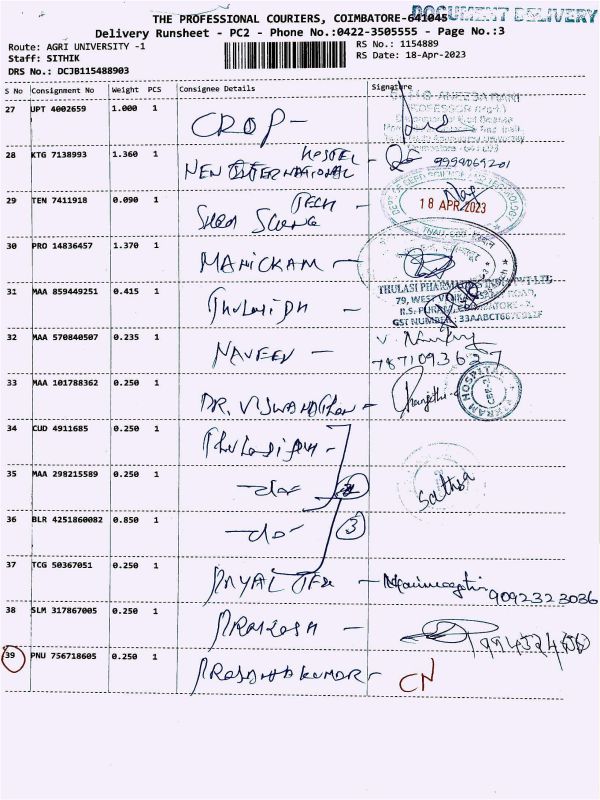 THE PROFESSIONAL COURIERS, COIMBATORE-641045
DOCUMENT DELIVERY
Delivery Runsheet - PC2 - Phone No.:0422-3505555 - Page No.:3
Route: AGRI UNIVERSITY -1
RS No.: 1154889
Staff: SITHIK
RS Date: 18-Apr-2023
DRS No.: DCJB115488903
S No Consignment No Weight PCS Consignee Details Signature
27 UPT 4002659 1.000 1 CROP -
28 KTG 7138993 1.360 1 HOSTEL NEW INTERNATIONAL - 9999069201
29 TEN 7411918 0.090 1 TECH - Seed Science
DEPT OF SEED SCIENCE AND TECHNOLOGY
18 APR 2023
30 PRO 14836457 1.370 1 MANICKAM -
THULASI PHARMACIES PVT LTD
31 MAA 859449251 0.415 1 Thulasi PH -
79, WEST
GST NUMBER : 33AABCT
32 MAA 570840507 0.235 1 NAVEEN - V.
7871093627
33 MAA 101788362 0.250 1 DR. VISWANATHAN -
HOSPITAL
34 CUD 4911685 0.250 1 Thulasi PH -
35 MAA 298215589 0.250 1 -do-
36 BLR 4251860082 0.850 1 -do- 3
Sathya
37 TCG 50367051 0.250 1 RAYAL -
9092323036
38 SLM 317867005 0.250 1 PRAKASH -
39 PNU 756718605 0.250 1 PRASANTHKUMAR - CN